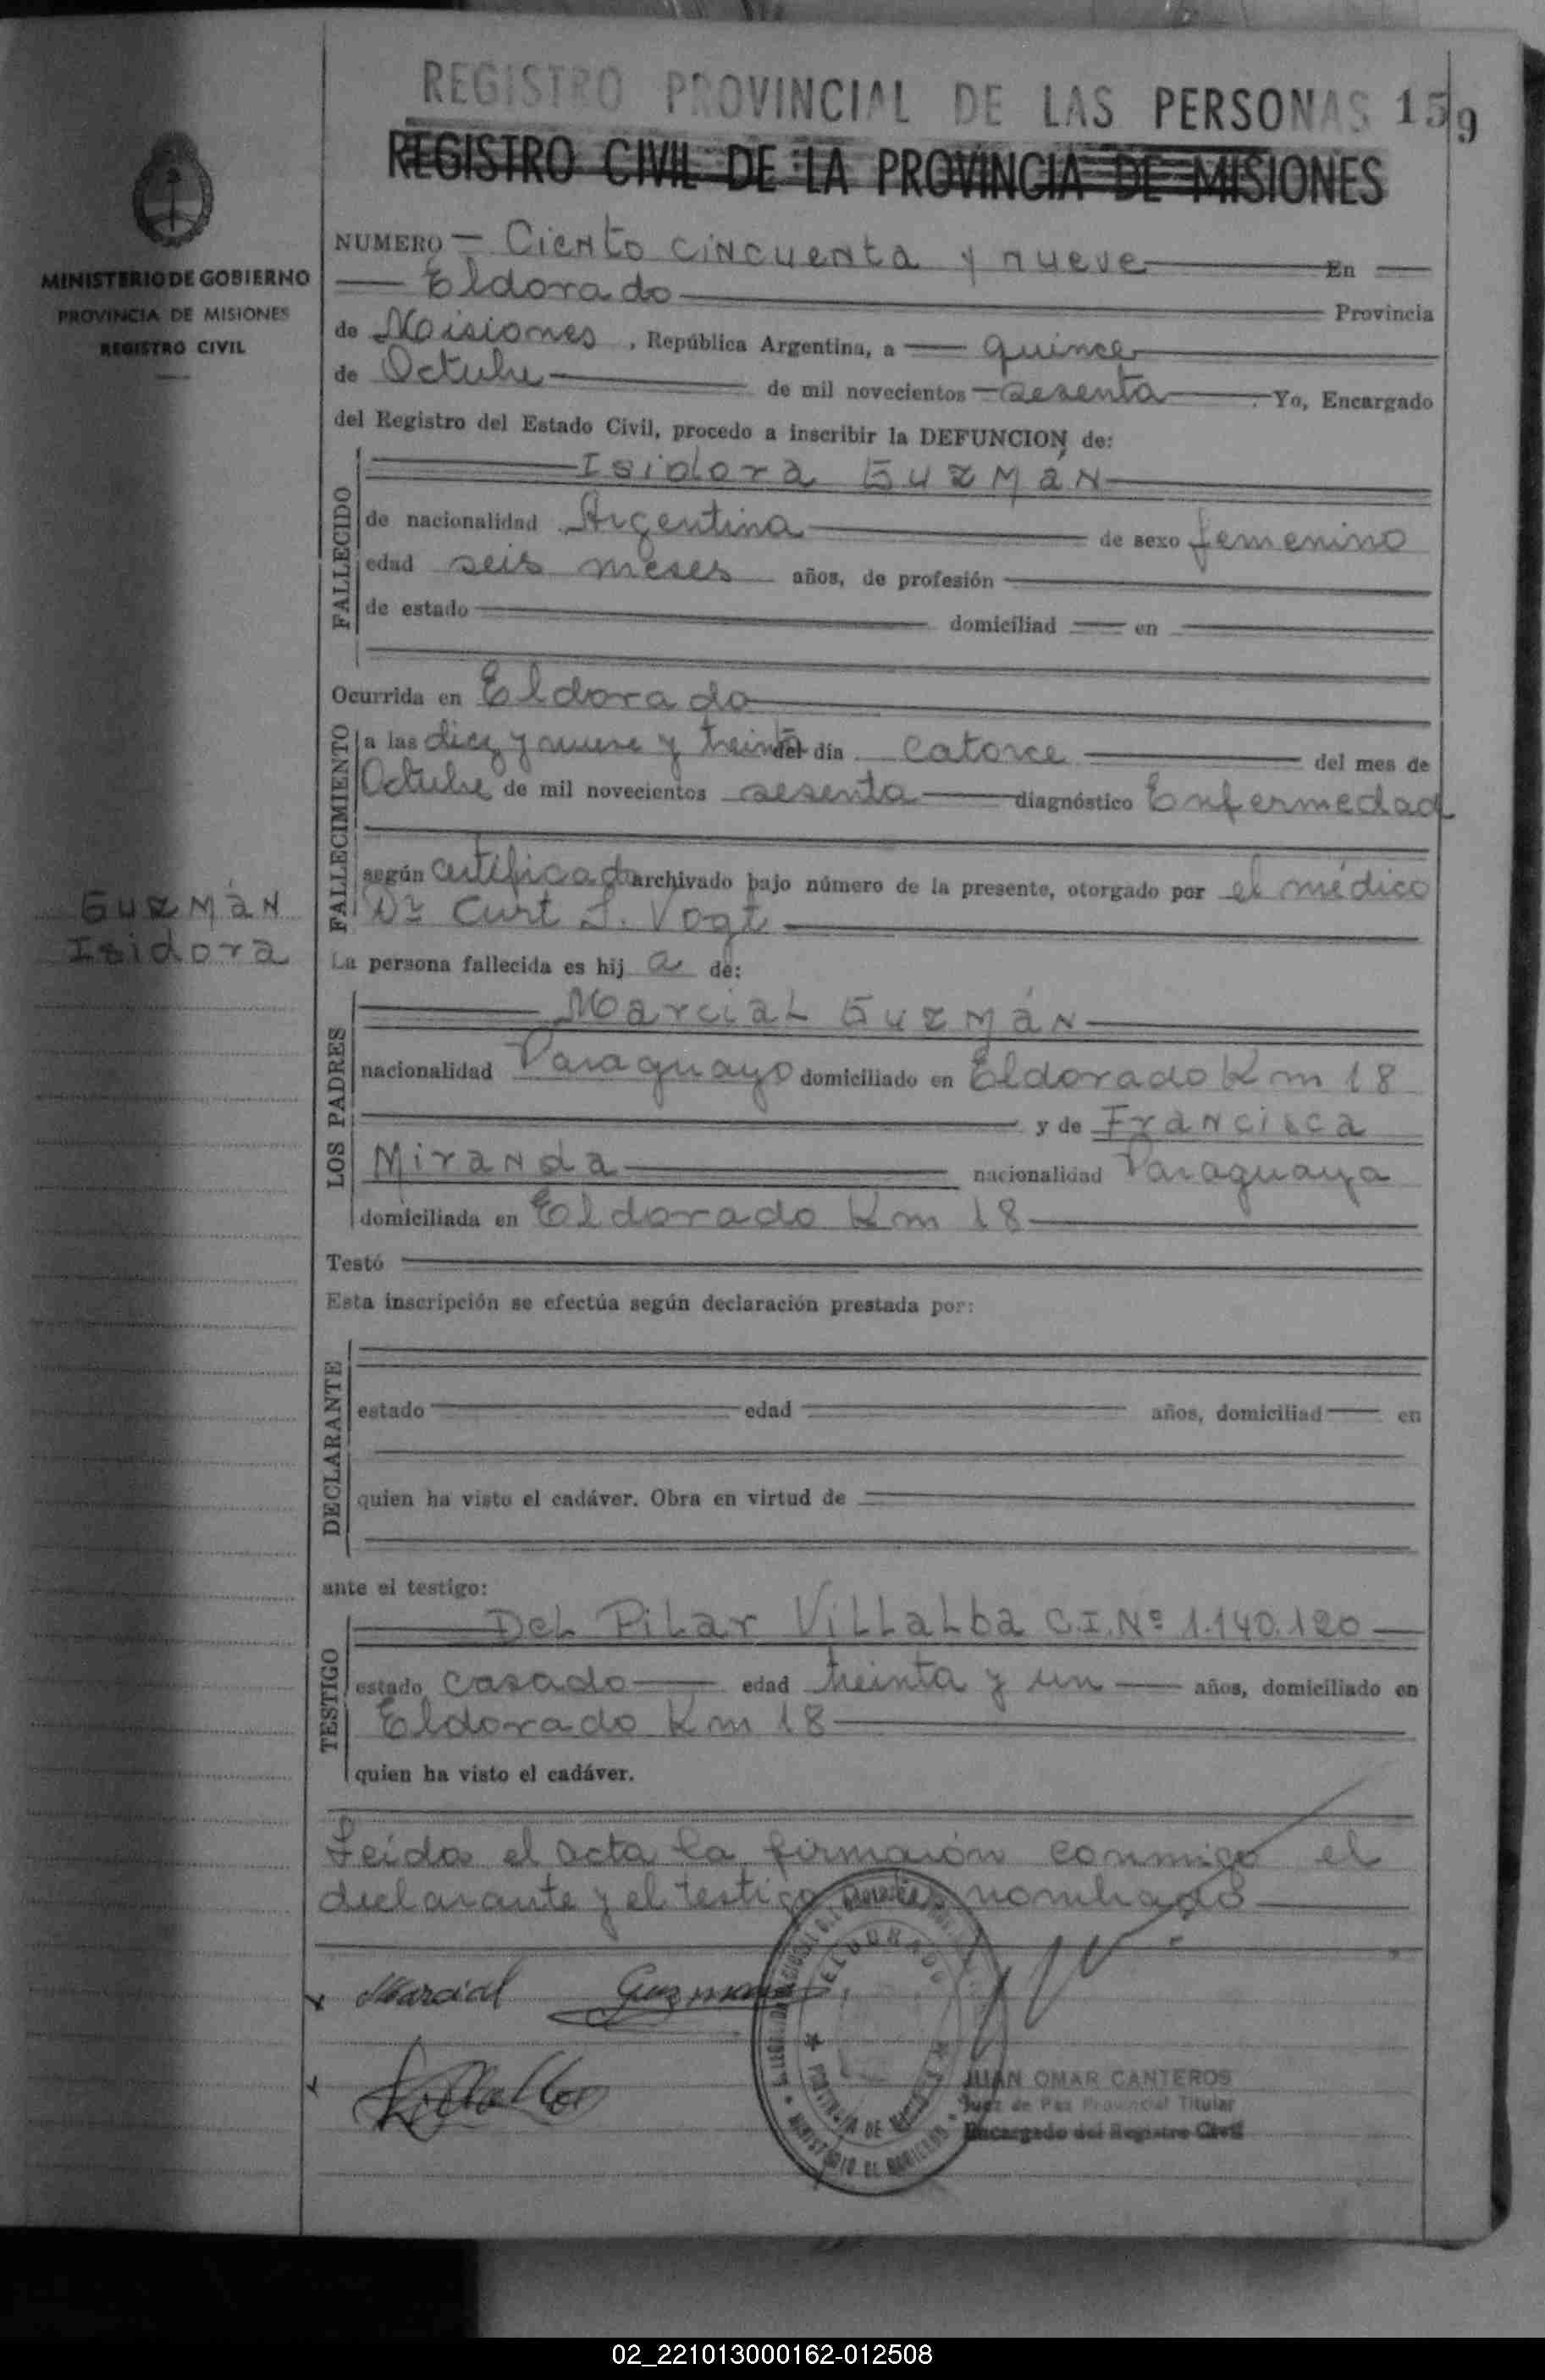 REGISTRO PROVINCIAL DE LAS PERSONAS 159
REGISTRO CIVIL DE LA PROVINCIA DE MISIONES
MINISTERIO DE GOBIERNO
PROVINCIA DE MISIONES
REGISTRO CIVIL
NUMERO — Ciento cincuenta y nueve — En —
— Eldorado — Provincia
de Misiones, República Argentina, a — quince —
de Octubre — de mil novecientos — sesenta — . Yo, Encargado
del Registro del Estado Civil, procedo a inscribir la DEFUNCION, de:
FALLECIDO
— Isidora Guzmán —
de nacionalidad Argentina — de sexo femenino
edad seis meses años, de profesión —
de estado — domiciliad — en —
Ocurrida en Eldorado —
FALLECIMIENTO
a las diez y nueve y treinta del día catorce — del mes de
Octubre de mil novecientos sesenta — diagnóstico Enfermedad
según certificado archivado bajo número de la presente, otorgado por el médico
Dr Curt S. Vogt —
Guzmán
Isidora
La persona fallecida es hij a de:
LOS PADRES
— Marcial Guzmán —
nacionalidad Paraguayo domiciliado en Eldorado Km 18
— y de Francisca
Miranda — nacionalidad Paraguaya
domiciliada en Eldorado Km 18 —
Testó —
Esta inscripción se efectúa según declaración prestada por:
DECLARANTE
estado — edad — años, domiciliad — en
quien ha visto el cadáver. Obra en virtud de —
ante el testigo:
TESTIGO
— Del Pilar Villalba C.I.Nº 1.140.120 —
estado casado — edad treinta y un — años, domiciliado en
Eldorado Km 18 —
quien ha visto el cadáver.
Leída el acta la firmarón conmigo el
declarante y el testigo antes nombrado —
x Marcial Guzman
x Villalba
ELDORADO
JUAN OMAR CANTEROS
Juez de Paz Provincial Titular
Encargado del Registro Civil
02_221013000162-012508